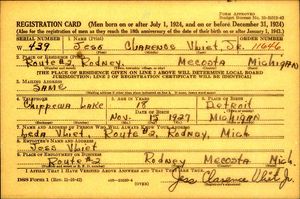 FORM APPROVED
REGISTRATION CARD (Men born on or after July 1, 1924, and on or before December 31, 1924)
(Also for the registration of men as they reach the 18th anniversary of the date of their birth on or after January 1, 1943.)
SERIAL NUMBER 1. NAME (Print) ORDER NUMBER
W 439 Jess Clarence Vliet, Jr. 11646
2. PLACE OF RESIDENCE (Print)
Route #2, Rodney, Mecosta Michigan
[THE PLACE OF RESIDENCE GIVEN ON LINE 2 ABOVE WILL DETERMINE LOCAL BOARD JURISDICTION; LINE 2 OF REGISTRATION CERTIFICATE WILL BE IDENTICAL]
3. MAILING ADDRESS
Same
4. TELEPHONE 5. AGE IN YEARS 6. PLACE OF BIRTH
Chippewa Lake 18 Detroit
DATE OF BIRTH
Nov. 15 1927 Michigan
7. NAME AND ADDRESS OF PERSON WHO WILL ALWAYS KNOW YOUR ADDRESS
Leda Vliet Route #2, Rodney, Mich
8. EMPLOYER'S NAME AND ADDRESS
Jess Vliet
9. PLACE OF EMPLOYMENT OR BUSINESS
Route #2 Rodney Mecosta Mich.
I AFFIRM THAT I HAVE VERIFIED ABOVE ANSWERS AND THAT THEY ARE TRUE.
DSS Form 1
Jess Clarence Vliet Jr.